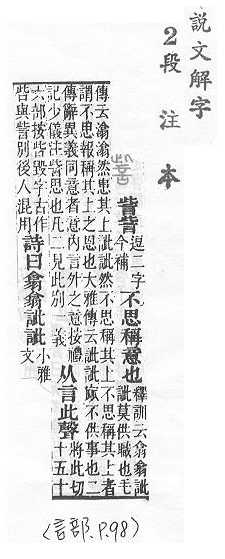 說文解字
2段注本
訾
訾訾逗二字今補不思稱意也釋訓云翕翕訿訿莫供職也毛
傳云翕翕然患其上訿訿然不思稱其上不思稱其上者
謂不思報稱其上之恩也大雅傳云訿訿窳不供事也二
傳辭異義同意者意內言外之意按禮
記少儀注訾思也凡二見此別一義
从言此聲將此切十五十
六部按呰毁字古作
呰與訾別後人混用
詩曰翕翕訿訿小雅文
(言部.P.98)